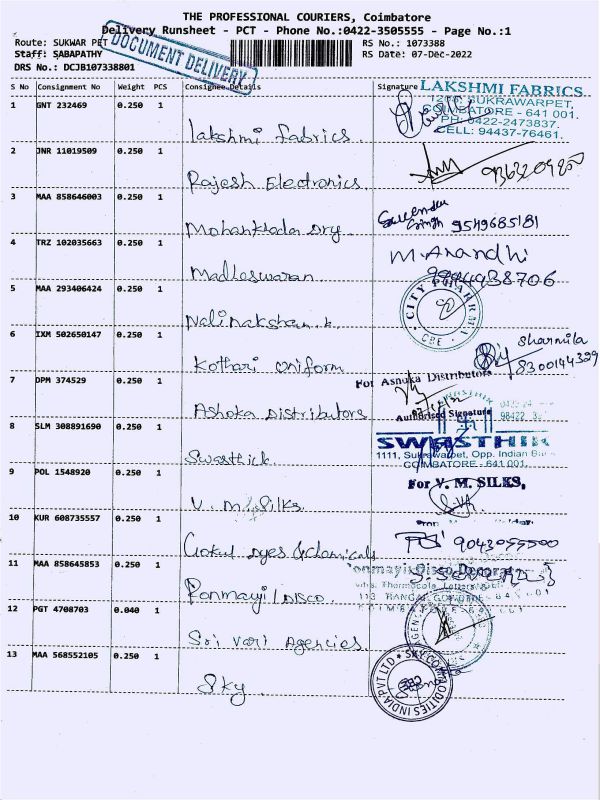 THE PROFESSIONAL COURIERS, Coimbatore
Delivery Runsheet - PCT - Phone No.:0422-3505555 - Page No.:1
Route: SUKWAR PET
RS No.: 1073388
Staff: SABAPATHY
RS Date: 07-Dec-2022
DRS No.: DCJB107338801
DOCUMENT DELIVERY
S No Consignment No Weight PCS Consignee Details Signature
1 GNT 232469 0.250 1
Lakshmi Fabrics.
LAKSHMI FABRICS
SUKRAWARPET,
COIMBATORE - 641 001.
PH: 0422-2473837,
CELL: 94437-76461.
2 JNR 11019509 0.250 1
Rajesh Electronics.
3 MAA 858646003 0.250 1
Mohanklada Dry.
Singh 9549685181
4 TRZ 102035663 0.250 1
Madleswaran
M. Anandhi
5 MAA 293406424 0.250 1
Nalinakshan. k.
CITY PHARMA
CBE
6 IXM 502650147 0.250 1
Kothari Uniform
Sharmila
7 DPM 374529 0.250 1
Ashoka Distributors
For Ashoka Distributors
Authorised Signature
8 SLM 308891690 0.250 1
Swasthick.
SWASTHIK
1111, Sukrawarpet, Opp. Indian
COIMBATORE - 641 001.
9 POL 1548920 0.250 1
V. M. Silks.
For V. M. SILKS,
10 KUR 608735557 0.250 1
Gokul Dyes & Chemicals
9043055500
11 MAA 858645853 0.250 1
Ponmayil Disco.
12 PGT 4708703 0.040 1
Sri Vari Agencies
13 MAA 568552105 0.250 1
Sky.
SKY COMMODITIES INDIA PVT LTD